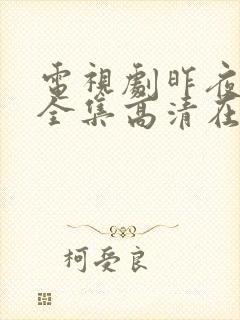 電視劇昨夜
全集高清在
柯受良